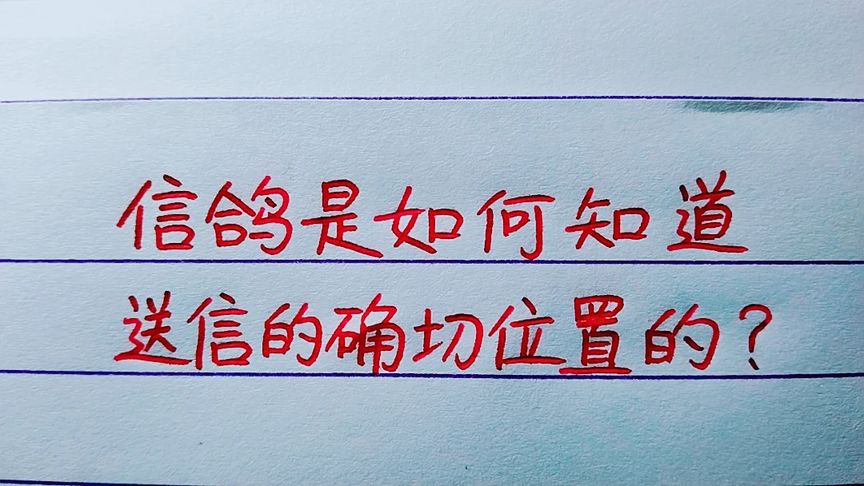 信鸽是如何知道
送信的确切位置的？